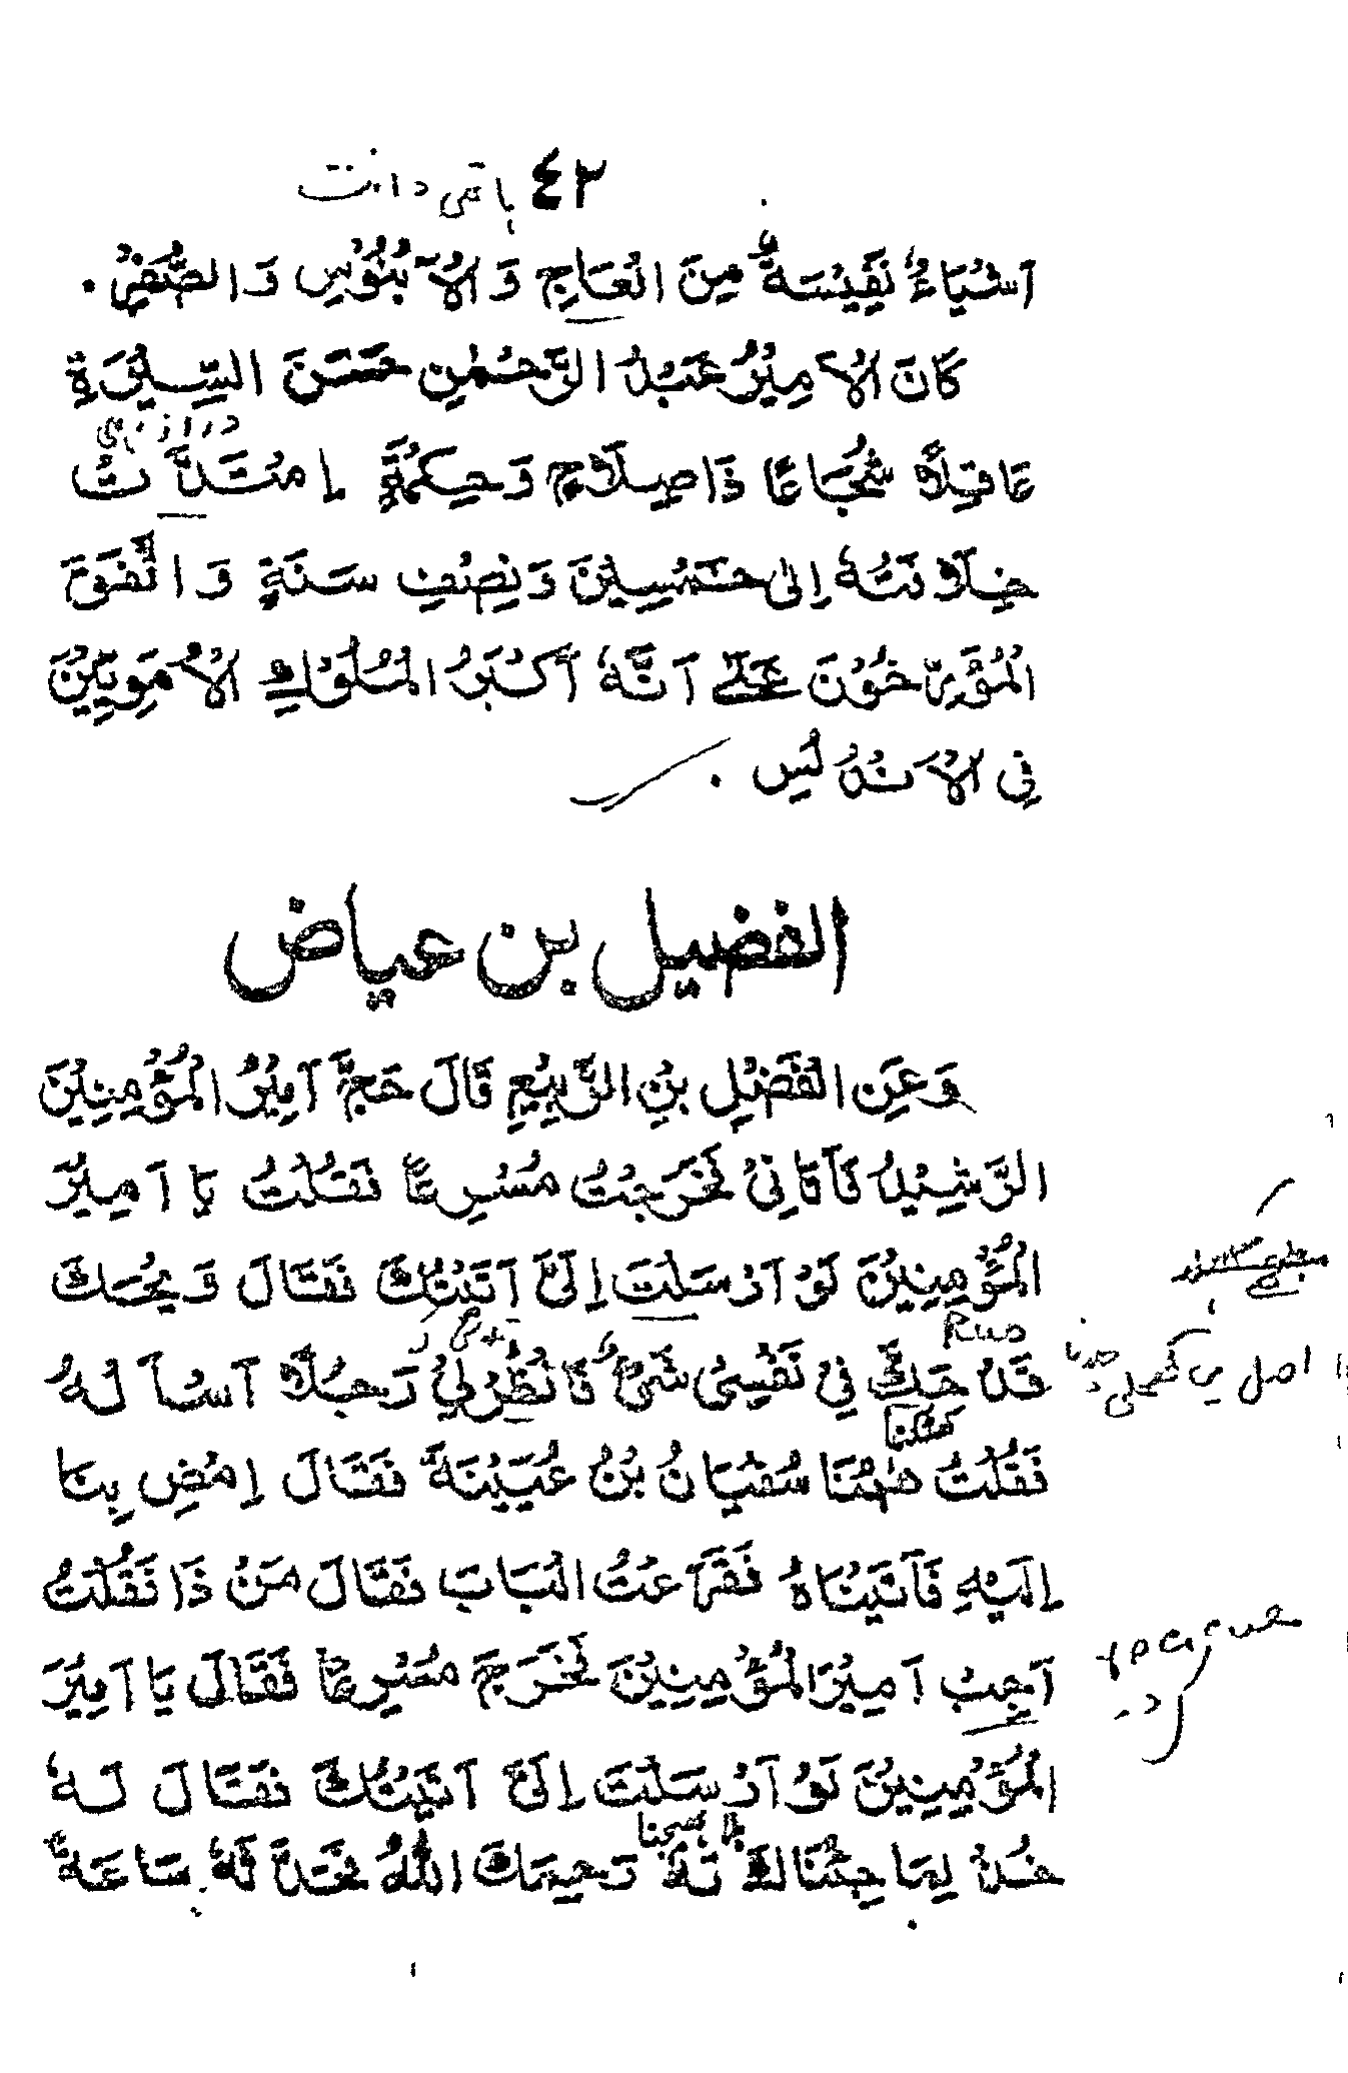 ٤٢ باقی دانت
اَشْيَاءُ نَفِيْسَةٌ مِنَ الْعَاجِ وَالْاٰبْنُوْسِ وَالصُّفْرِ .
كَانَ الْاَمِيْرُ عَبْدُ الرَّحْمٰنِ حَسَنَ السِّيْرَةِ
عَاقِلًا شُجَاعًا ذَا صِلَاحٍ وَحِكْمَةٍ اِمْتَدَّتْ
خِلَافَتُهٗ اِلٰى خَمْسِيْنَ وَنِصْفِ سَنَةٍ وَاتَّفَقَ
الْمُؤَرِّخُوْنَ عَلٰى اَنَّهٗ اَكْبَرُ الْمُلُوْكِ الْاُمَوِيِّيْنَ
فِي الْاَنْدُلُسِ .
الفضيل بن عياض
وَعَنِ الْفَضْلِ بْنِ الرَّبِيْعِ قَالَ حَجَّ اَمِيْرُ الْمُؤْمِنِيْنَ
الرَّشِيْدُ فَاَتَانِيْ فَخَرَجْتُ مُسْرِعًا فَقُلْتُ يَا اَمِيْرَ
الْمُؤْمِنِيْنَ لَوْ اَرْسَلْتَ اِلَيَّ اَتَيْتُكَ فَقَالَ وَيْحَكَ
قَدْ حَكَّ فِيْ نَفْسِيْ شَيْءٌ فَانْظُرْ لِيْ رَجُلًا اَسْاَلُهُ
فَقُلْتُ هٰهُنَا سُفْيَانُ بْنُ عُيَيْنَةَ فَقَالَ اِمْضِ بِنَا
اِلَيْهِ فَاَتَيْنَاهُ فَقَرَعْتُ الْبَابَ فَقَالَ مَنْ ذَا فَقُلْتُ
اَجِبْ اَمِيْرَ الْمُؤْمِنِيْنَ فَخَرَجَ مُسْرِعًا فَقَالَ يَا اَمِيْرَ
الْمُؤْمِنِيْنَ لَوْ اَرْسَلْتَ اِلَيَّ اَتَيْتُكَ فَقَالَ لَهٗ
خُذْ لِمَا جِئْنَاكَ لَهٗ رَحِمَكَ اللّٰهُ فَحَدَّثَهٗ سَاعَةً